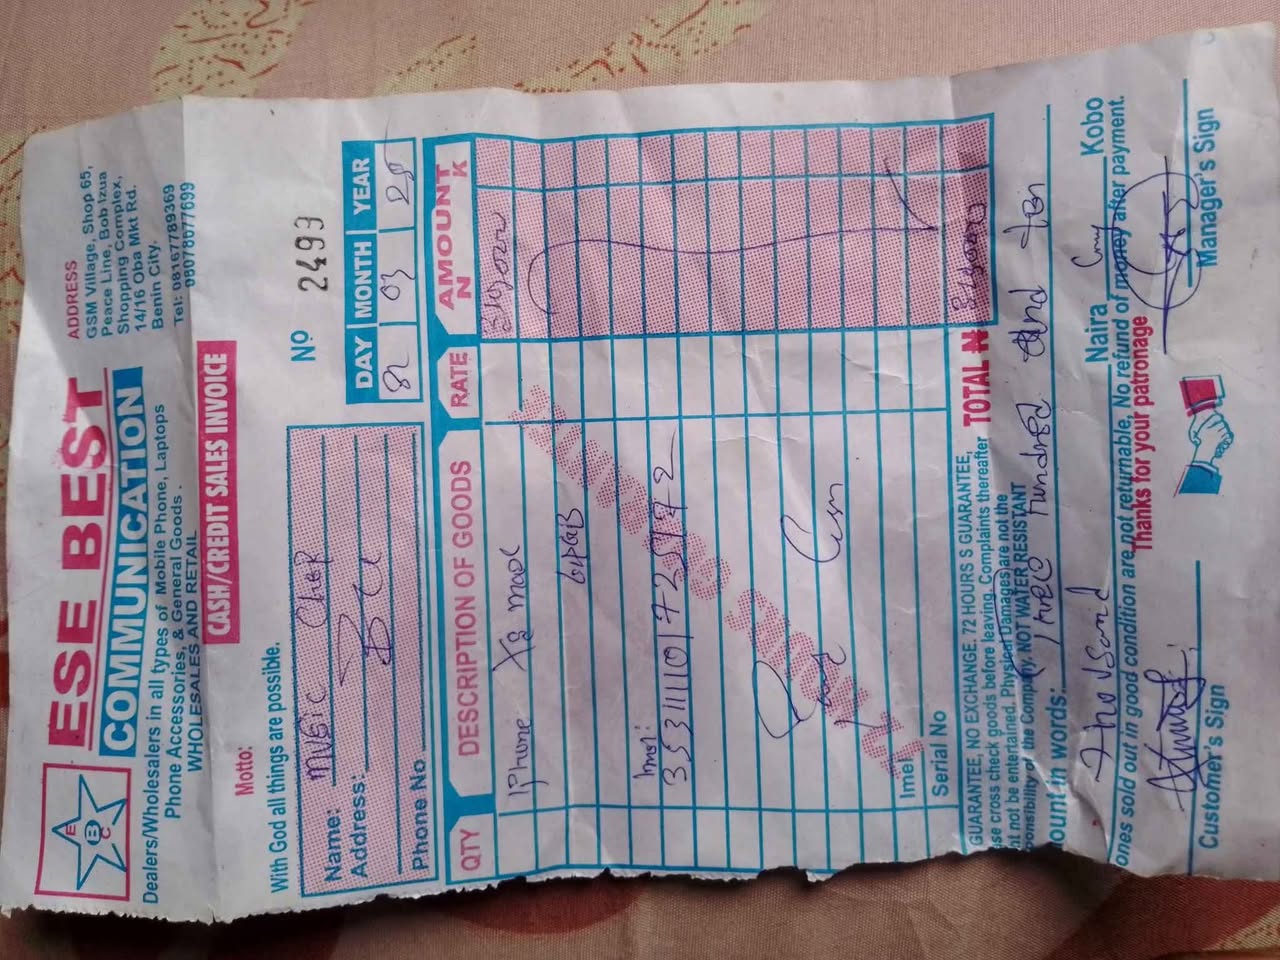 E B C
ESE BEST
COMMUNICATION
Dealers/Wholesalers in all types of Mobile Phone, Laptops
Phone Accessories, & General Goods.
WHOLESALES AND RETAIL
ADDRESS
GSM Village, Shop 65,
Peace Line, Bob Izua
Shopping Complex,
14/16 Oba Mkt Rd.
Benin City.
Tel: 08167789369
08078077699
CASH/CREDIT SALES INVOICE
Motto:
With God all things are possible.
No 2493
Name:
Address:
Phone No
DAY MONTH YEAR
03 25
QTY DESCRIPTION OF GOODS RATE AMOUNT
N K
iPhone
64GB
Imei:
Imei
Serial No
TOTAL N
GUARANTEE, NO EXCHANGE. 72 HOURS S GUARANTEE,
se cross check goods before leaving. Complaints thereafter
ht not be entertained. Physical Damages are not the
onsibility of the Company. NOT WATER RESISTANT
ount in words: Three hundred and ten
thousand Naira only Kobo
ones sold out in good condition are not returnable. No refund of money after payment.
Thanks for your patronage
Customer's Sign
Manager's Sign